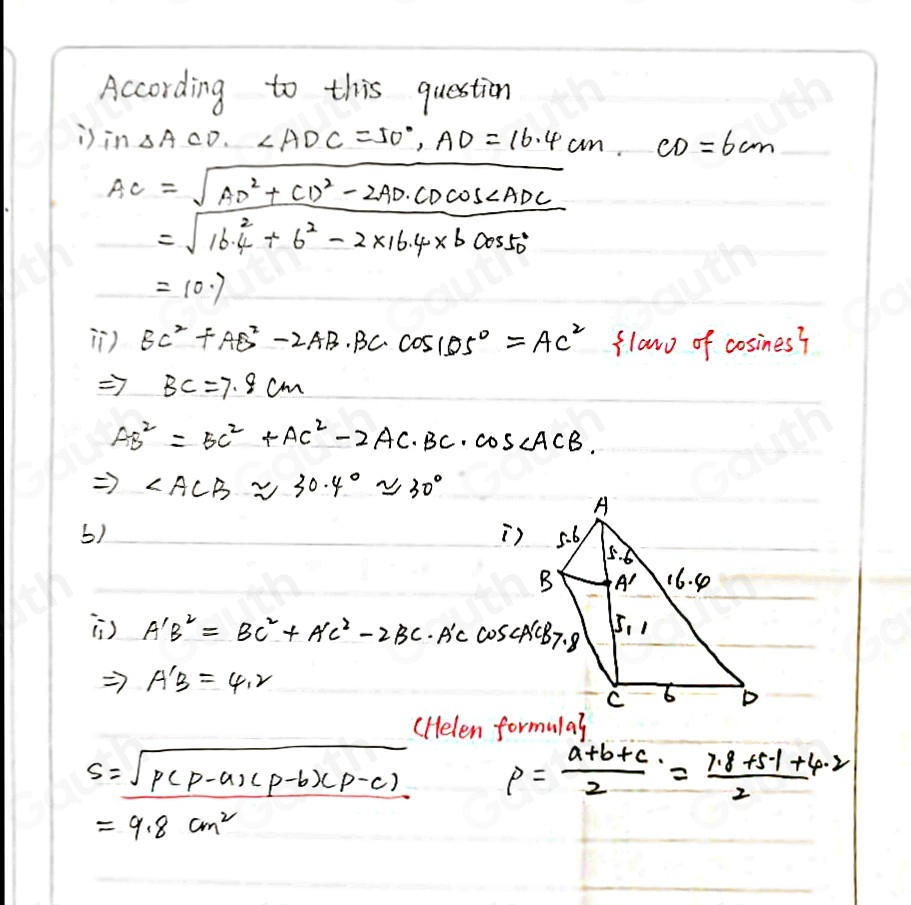 According to this question
i) in △ACD. ∠ADC = 50°, AD = 16.4 cm. CD = 6cm
AC = √(AD² + CD² - 2AD·CD cos∠ADC)
= √(16.4² + 6² - 2×16.4×6 cos50°)
= 10.7
ii) BC² + AB² - 2AB·BC·cos105° = AC² {law of cosines}
⇒ BC = 7.8 cm
AB² = BC² + AC² - 2AC·BC·cos∠ACB.
⇒ ∠ACB ≈ 30.4° ≈ 30°
b) i)
A
5.6 5.6
B A' 16.4
ii) A'B² = BC² + A'C² - 2BC·A'C cos∠A'CB 7.8 5.1
⇒ A'B = 4.2
C 6 D
(Helen formula}
S = √(p(p-a)(p-b)(p-c)) p = (a+b+c)/2 · = (7.8+5.1+4.2)/2
= 9.8 cm²
Gauth